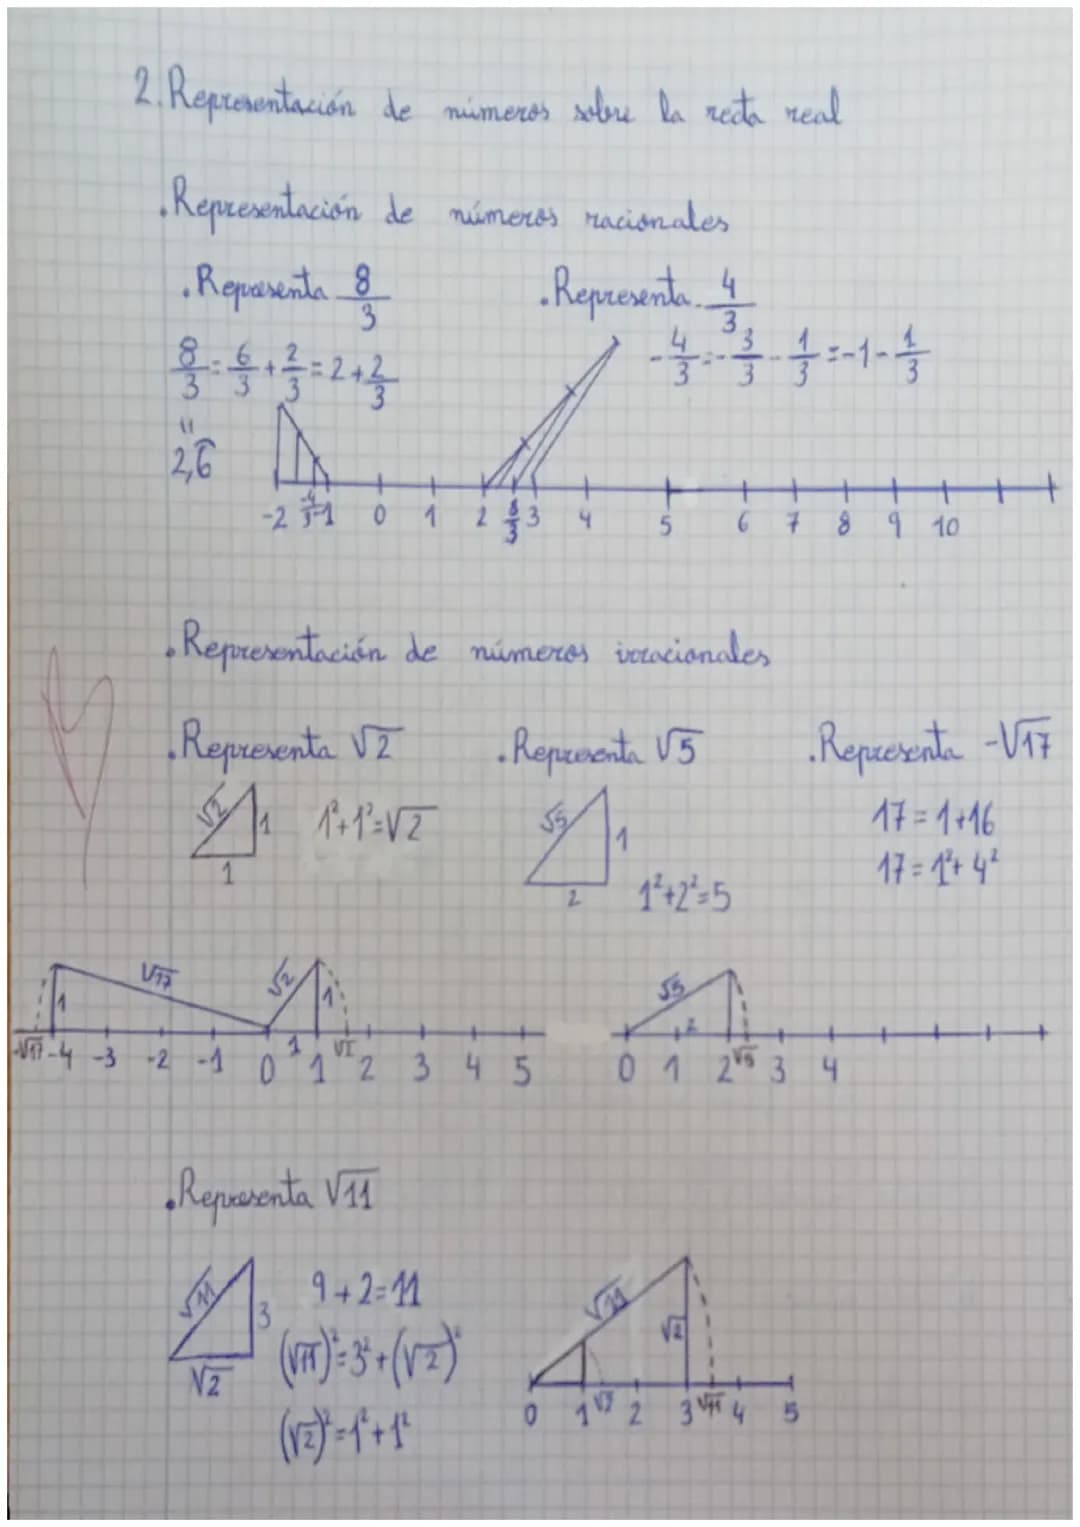 2. Representación de números sobre la recta real
. Representación de números racionales
. Representa 8/3
. Representa -4/3
8/3 = 6/3 + 2/3 = 2 + 2/3
-4/3 = -3/3 - 1/3 = -1 - 1/3
"
2,6
-2 -4/3 -1 0 1 2 8/3 3 4 5 6 7 8 9 10
. Representación de números irracionales
. Representa √2 . Representa √5 . Representa -√17
√2 1 1
1²+1²=√2
√5 1 2
1²+2²=5
17 = 1+16
17 = 1²+4²
√17 1 √2 1 1
-√17 -4 -3 -2 -1 0 1 √2 2 3 4 5
√5 2
0 1 2 √5 3 4
. Representa √11
√11 3 √2
9+2=11
(√11)²=3²+(√2)²
(√2)²=1²+1²
√11 √2
0 1 2 3 √11 4 5